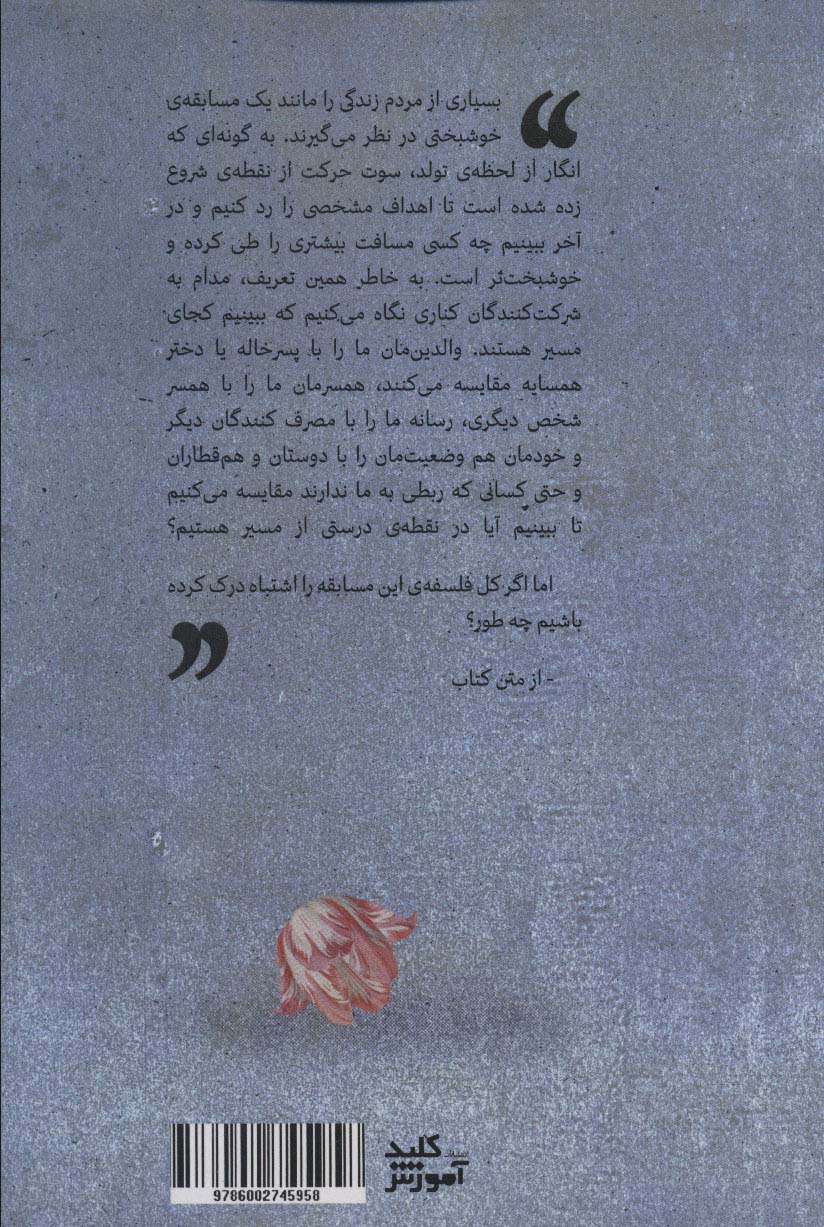 بسیاری از مردم زندگی را مانند یک مسابقه‌ی
خوشبختی در نظر می‌گیرند. به گونه‌ای که
انگار از لحظه‌ی تولد، سوت حرکت از نقطه‌ی شروع
زده شده است تا اهداف مشخصی را رد کنیم و در
آخر ببینیم چه کسی مسافت بیشتری را طی کرده و
خوشبخت‌تر است. به خاطر همین تعریف، مدام به
شرکت‌کنندگان کناری نگاه می‌کنیم که ببینیم کجای
مسیر هستند. والدین‌مان ما را با پسرخاله یا دختر
همسایه مقایسه می‌کنند، همسرمان ما را با همسر
شخص دیگری، رسانه ما را با مصرف کنندگان دیگر
و خودمان هم وضعیت‌مان را با دوستان و هم‌قطاران
و حتی کسانی که ربطی به ما ندارند مقایسه می‌کنیم
تا ببینیم آیا در نقطه‌ی درستی از مسیر هستیم؟
اما اگر کل فلسفه‌ی این مسابقه را اشتباه درک کرده
باشیم چه طور؟
- از متن کتاب
انتشارات کلید
آموزش
9786002745958